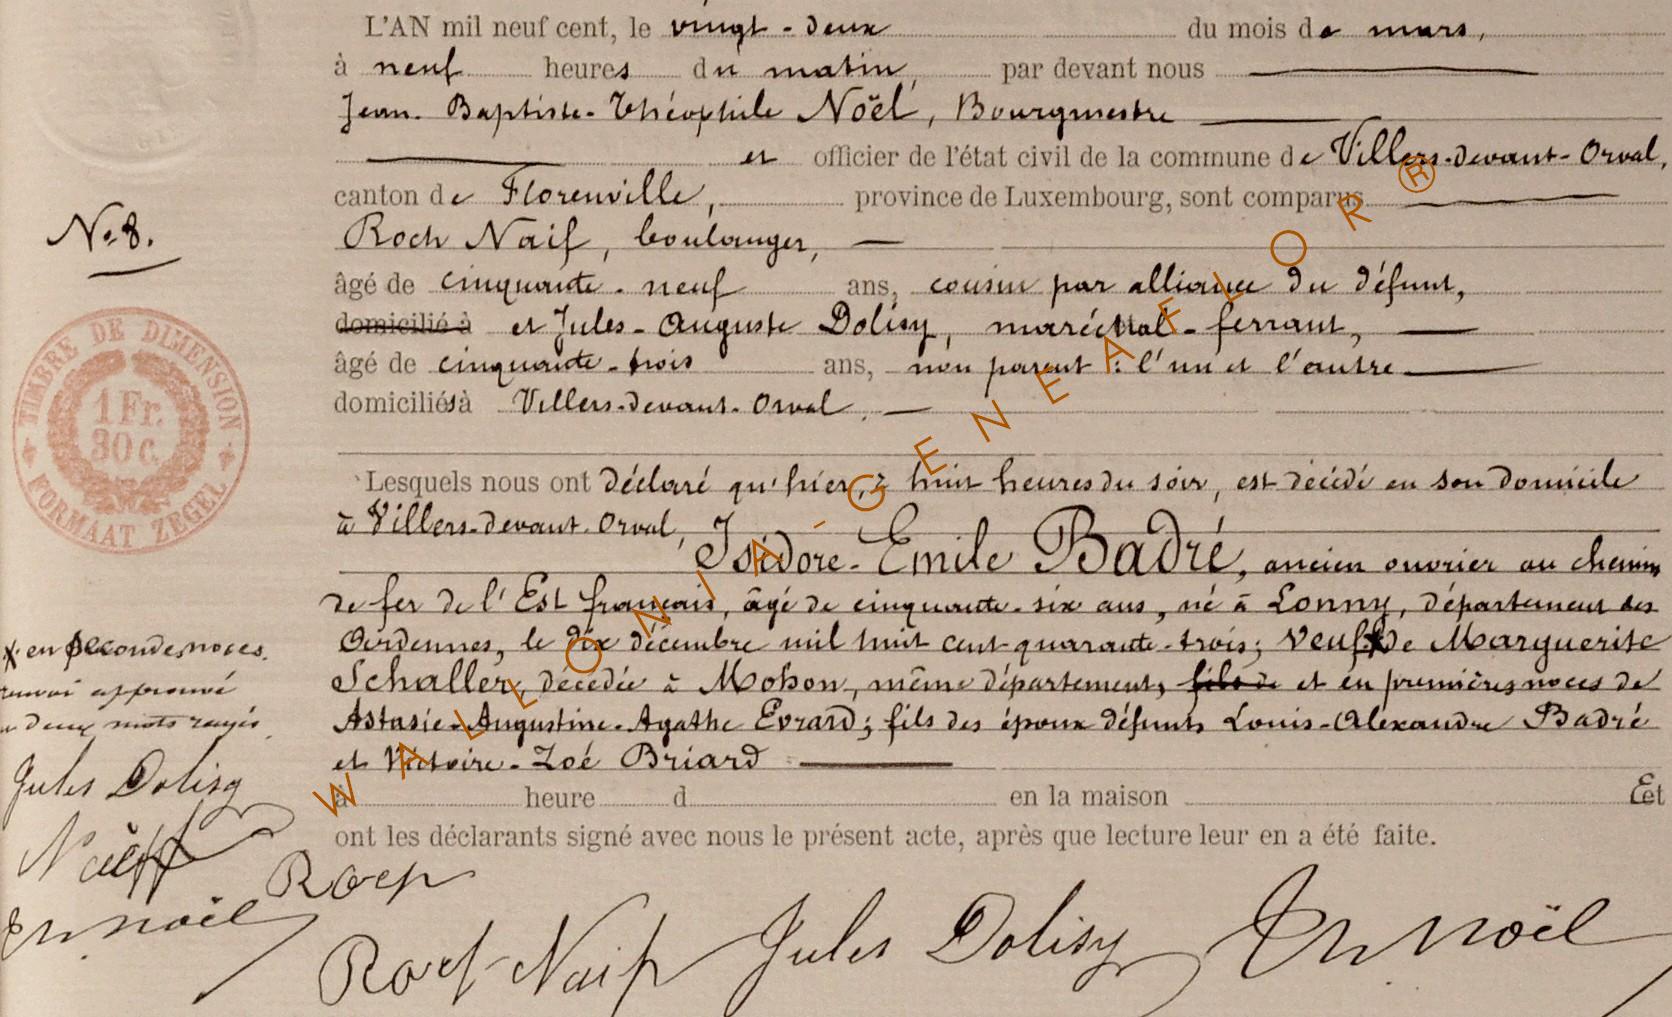 L'AN mil neuf cent, le vingt-deux du mois de mars,
à neuf heures du matin, par devant nous
Jean-Baptiste-Théophile Noël, Bourgmestre
et officier de l'état civil de la commune de Villers-devant-Orval,
canton de Florenville, province de Luxembourg, sont comparus
Roch Naif, boulanger,
âgé de cinquante-neuf ans, cousin par alliance du défunt,
domicilié à et Jules-Auguste Dolisy, maréchal-ferrant,
âgé de cinquante-trois ans, non parent : l'un et l'autre
domiciliés à Villers-devant-Orval,
Lesquels nous ont déclaré qu'hier, à huit heures du soir, est décédé en son domicile
à Villers-devant-Orval,
Isidore-Emile Badré, ancien ouvrier au chemin
de fer de l'Est français, âgé de cinquante-six ans, né à Lonny, département des
Ardennes, le dix décembre mil huit cent quarante-trois; veuf x de Marguerite
Schaller, décédée à Mohon, même département, fils de et en premières noces de
Astasie-Augustine-Agathe Evrard; fils des époux défunts Louis-Alexandre Badré
et Victoire-Zoé Briard
à heure d en la maison Et
ont les déclarants signé avec nous le présent acte, après que lecture leur en a été faite.
Roch Naif Jules Dolisy Th Noël
No 8.
TIMBRE DE DIMENSION
1 Fr.
30 c.
FORMAAT ZEGEL
x en secondes noces.
renvoi approuvé
deux mots rayés
Jules Dolisy
Naif
Roch
Th Noël
WALLONIA-GENEAFLOR®